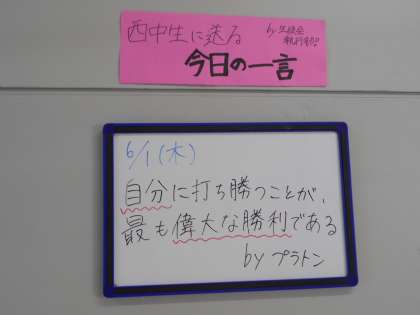 西中生に送る
by 生徒会
執行部!!
今日の一言
6/1(木)
自分に打ち勝つことが、
最も偉大な勝利である
by プラトン